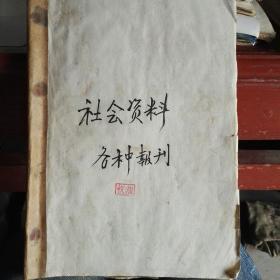 社会资料
各种報刊